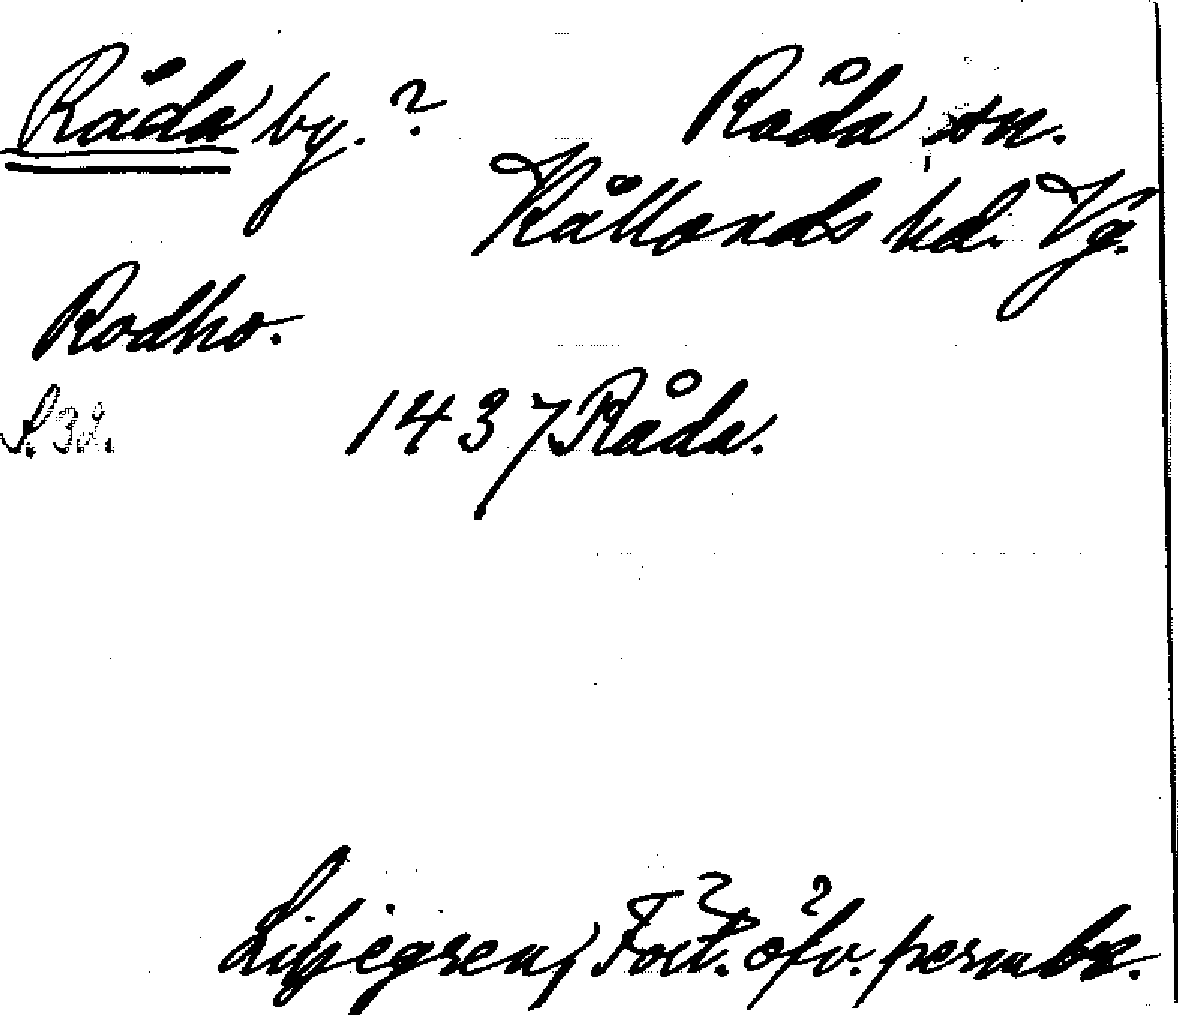 Råda by.? Råda sn.
Kållands hd. Vg.
Rodho.
S. 32. 1437 Råda.
Liljegren, Fört. öfv. permbr.